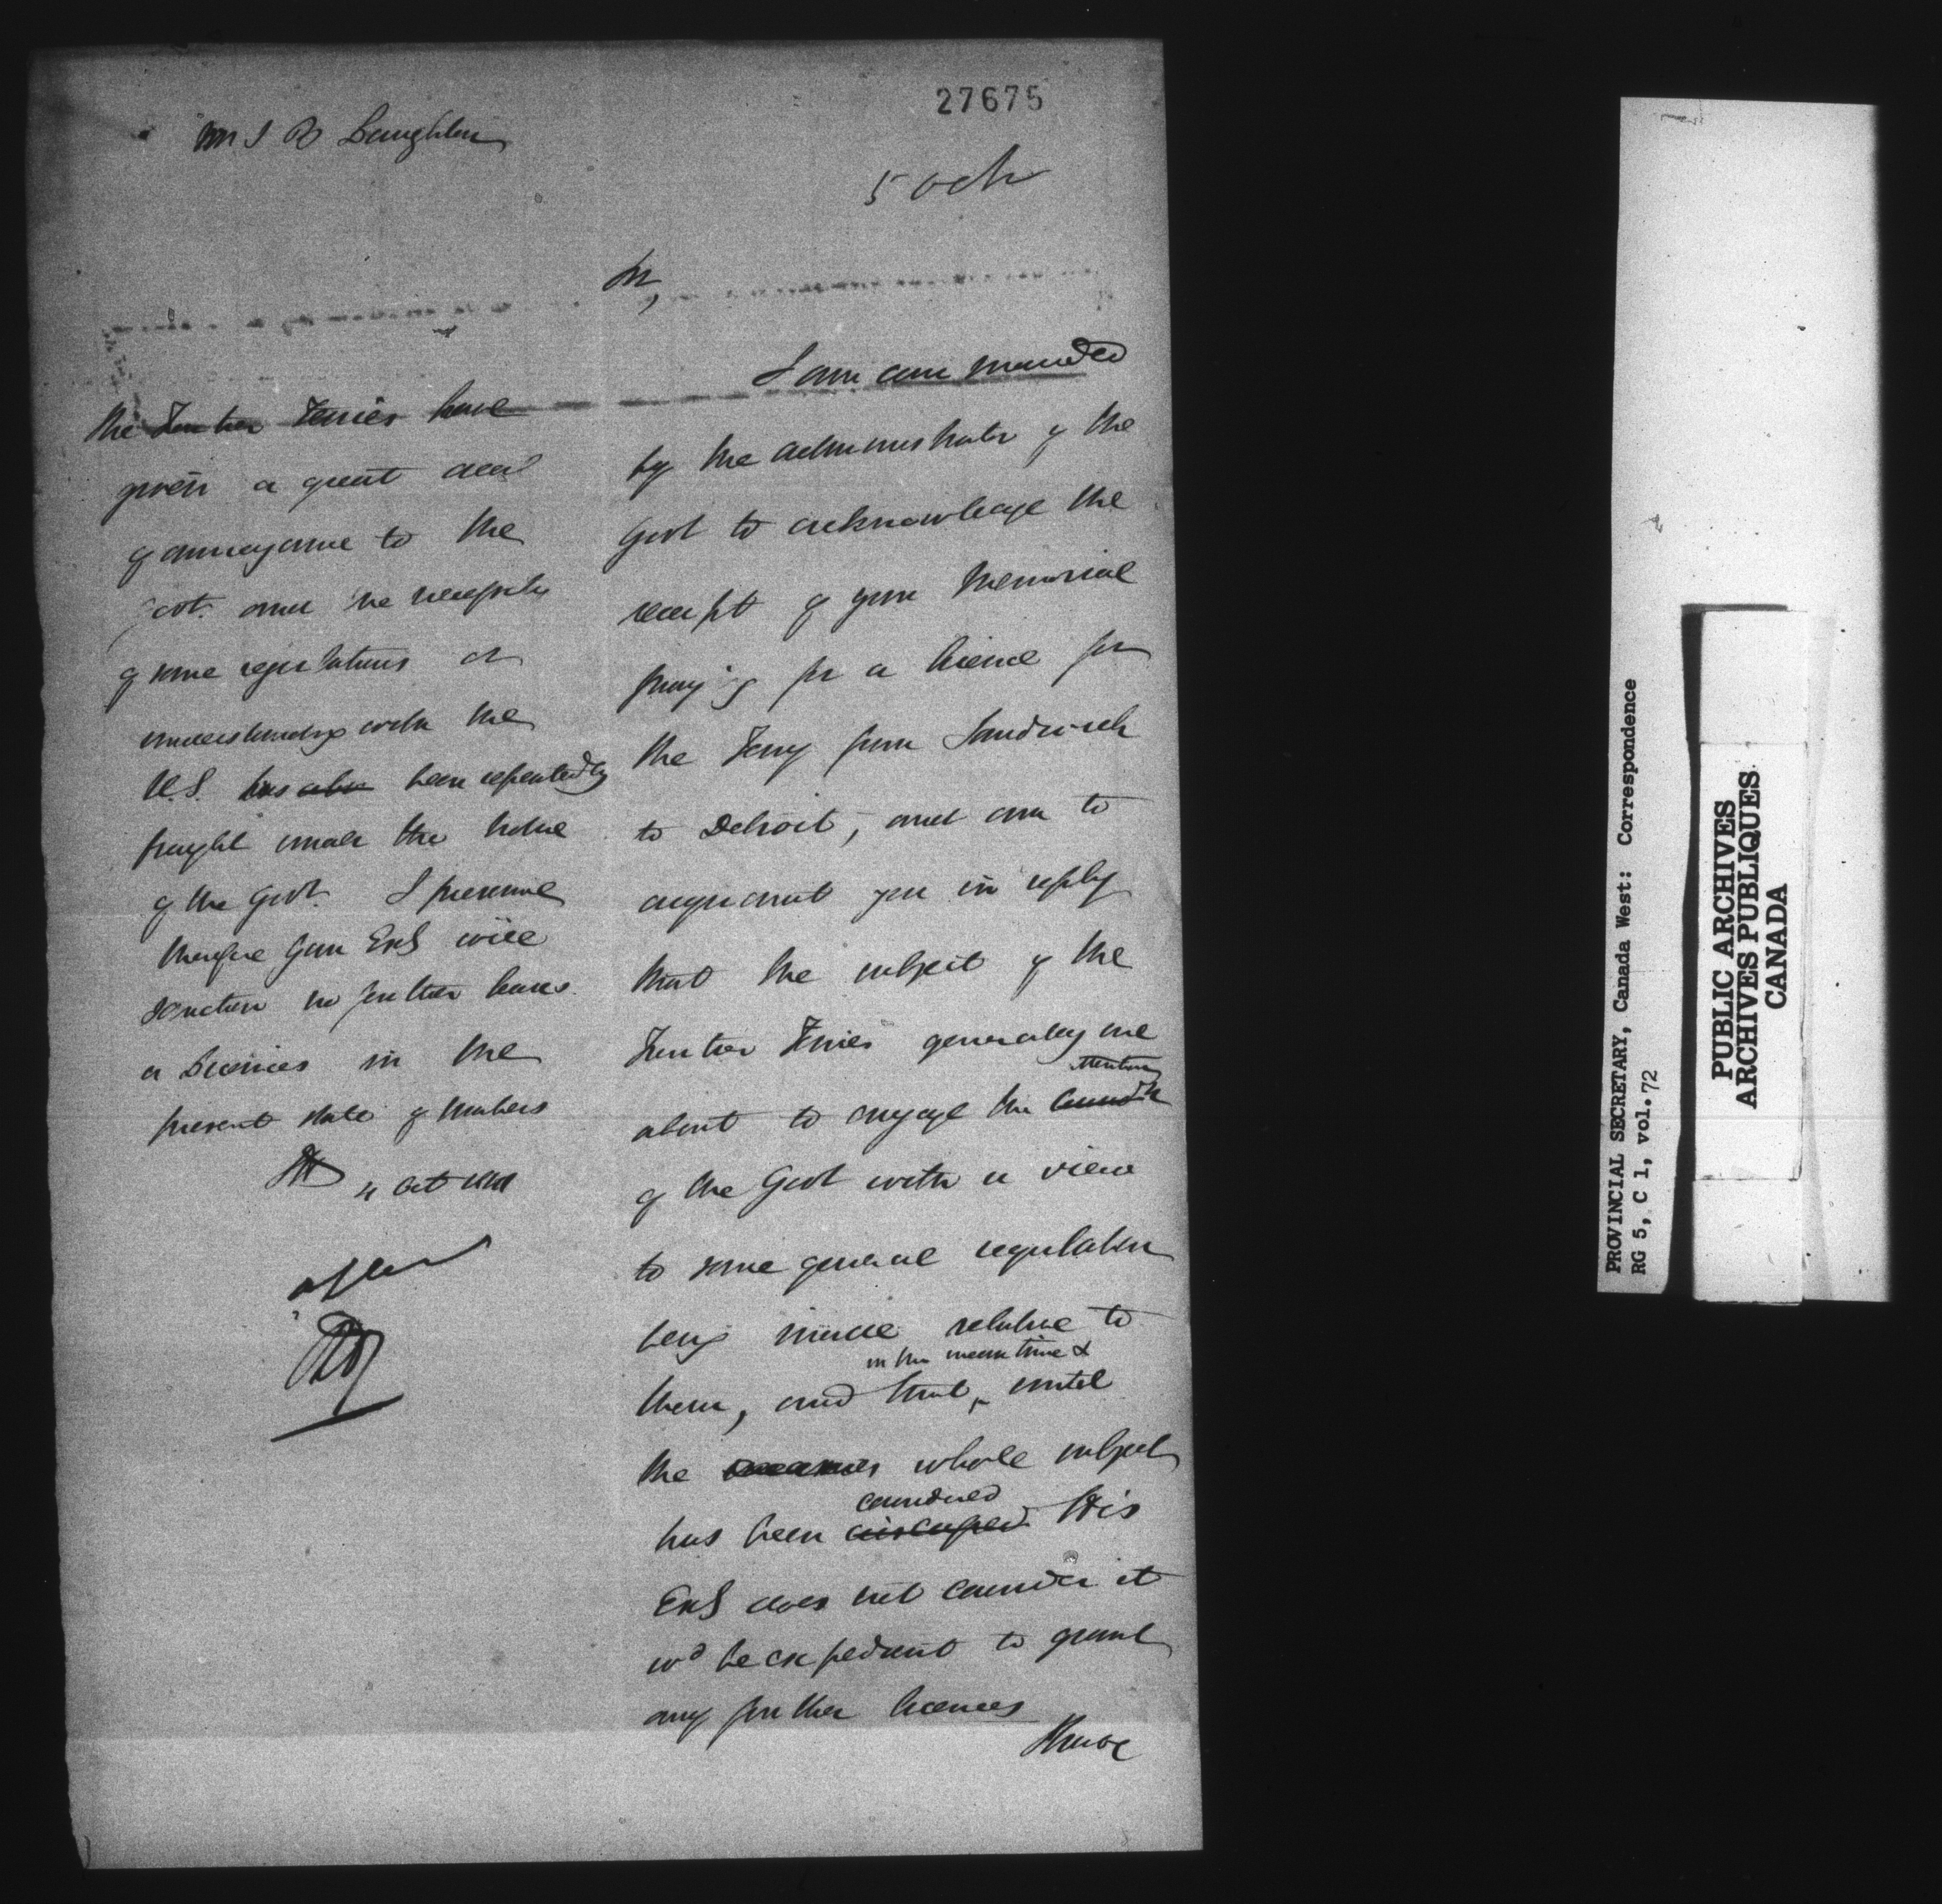 27675
Mr J B Laughton
5 Octr
Sir,
The Frontier Ferries have
given a great deal
of annoyance to the
Govt. and the necessity
of some regulations or
understanding with the
U.S. has also been repeatedly
brought under the notice
of the Govt. I presume
therefore Your Exs will
sanction no further leases
or Licences in the
present state of matters
4 Oct
I am commanded
by the Administrator of the
Govt to acknowledge the
receipt of your Memorial
praying for a licence for
the Ferry from Sandwich
to Detroit, and am to
acquaint you in reply
that the subject of the
Frontier Ferries generally are
attention
about to engage the Council
of the Govt with a view
to some general regulation
being made relative to
in the mean time &
them, and that, until
the whole subject
considered
has been discussed His
Exs does not consider it
wd be expedient to grant
any further licences
PROVINCIAL SECRETARY, Canada West: Correspondence
RG 5, C 1, vol. 72
PUBLIC ARCHIVES
ARCHIVES PUBLIQUES
CANADA